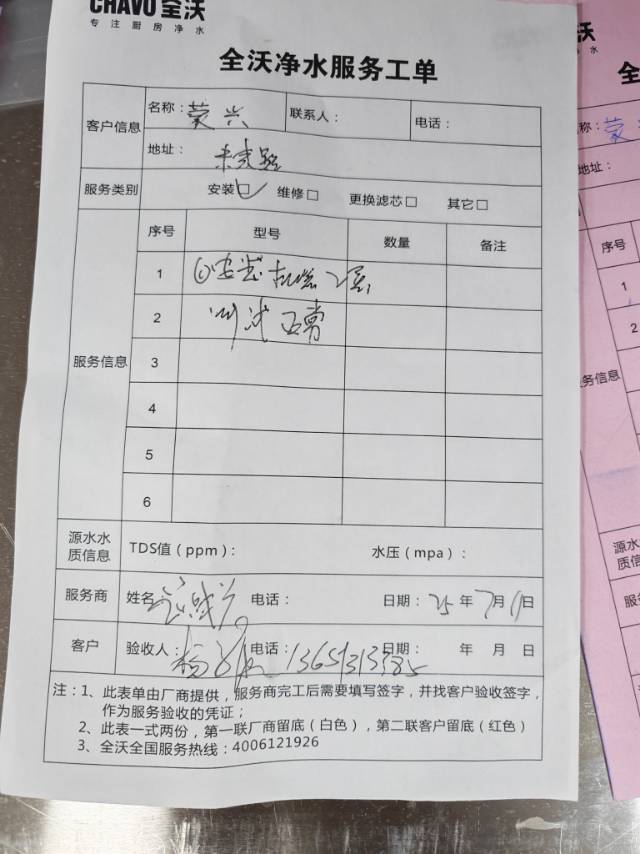 CHAVO 全沃
专注厨房净水
全沃净水服务工单
客户信息
名称：荣兴
联系人：
电话：
地址：
服务类别
安装□ 维修□ 更换滤芯□ 其它□
服务信息
序号 型号 数量 备注
1
2 测试正常
3
4
5
6
源水水质信息
TDS值（ppm）： 水压（mpa）：
服务商 姓名 电话： 日期：25年7月11日
客户 验收人： 电话： 日期： 年 月 日
注：1、此表单由厂商提供，服务商完工后需要填写签字，并找客户验收签字，
作为服务验收的凭证；
2、此表一式两份，第一联厂商留底（白色），第二联客户留底（红色）
3、全沃全国服务热线：4006121926
沃
水
全
称：
地址：
序号
1
2
务信息
源水水
质信息
服